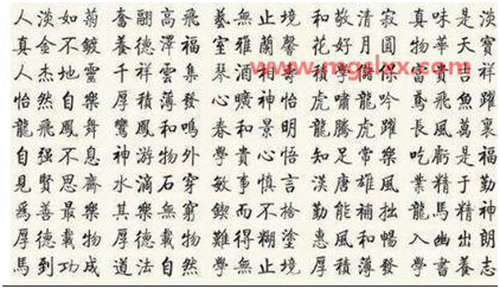 人淡如菊 奮翮高飛 藝無止境 和敬清寂 真味是淡
真金不鍍 養德澤福 室雅蘭馨 花好月圓 物華天寶
人杰地靈 千祥雲集 琴酒和 積學儲 富貴吉祥
怡然自樂 厚積薄發 心曠神怡 虎嘯龍吟 鳶飛魚躍
龍飛鳳舞 鸞鳳和鳴 春和景明 龍騰虎躍 長風萬裏
自强不息 神游物外 和貴心悟 知足常樂 吃虧是福
見賢思齋 水滴石穿 敏事慎言 漢唐雄風 業精于勤
爲善最樂 其樂無窮 鍥而不捨 勤能補拙 龍馬精神
厚德載物 厚德載物 難得糊塗 惠風和暢 入幽出朗
馬到功成 道法自然 學無止境 厚積薄發 學書養志